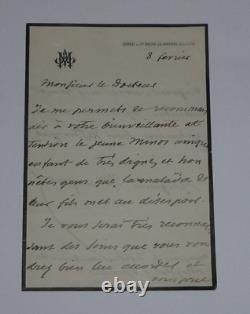 3 fevrier
Monsieur le Docteur
Je me permets de recomman
der à votre bienveillante at
tention le jeune unique
enfant de très dignes et hon
nêtes gens que la maladie de
leur fils met au désespoir
Je vous serai très reconnais
sant des soins que vous vou
drez bien lui accorder et